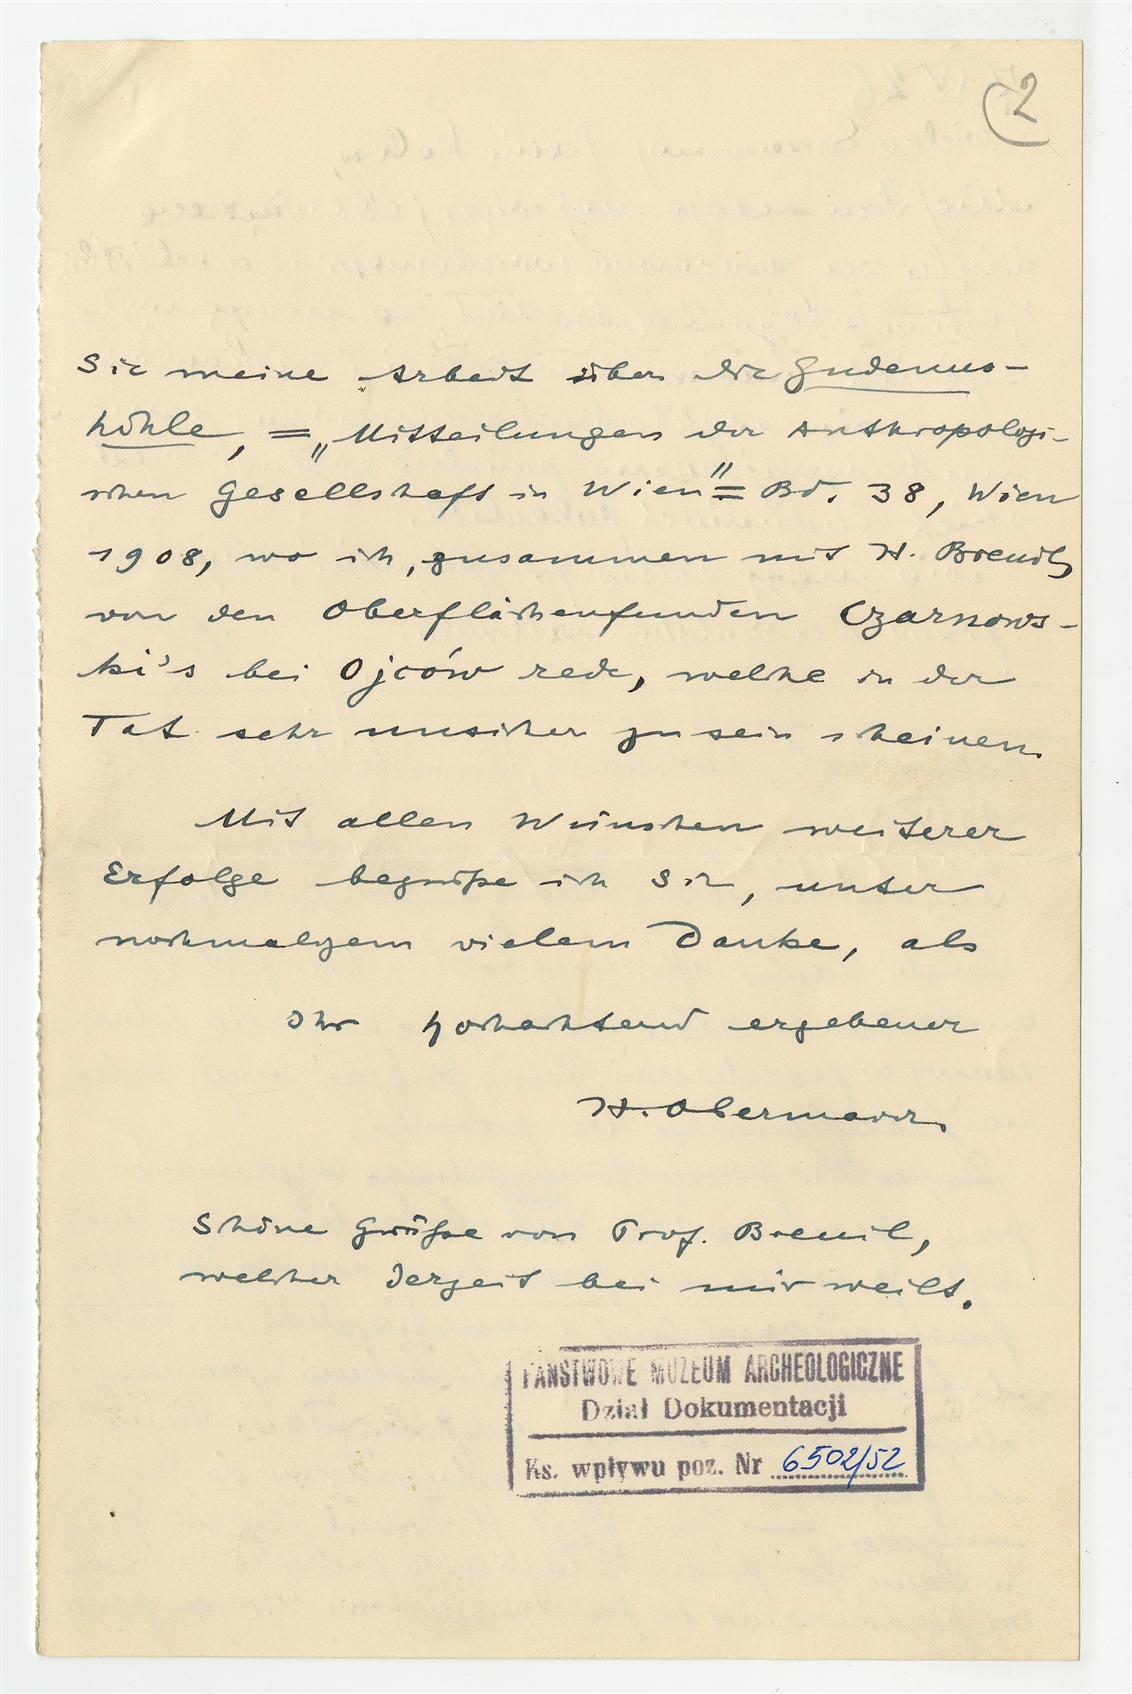 2
Sie meine Arbeit über die Gudenus-
höhle, = „Mitteilungen der Anthropologi-
schen Gesellschaft in Wien" = Bd. 38, Wien
1908, wo ich, zusammen mit H. Breuil,
von den Oberflächenfunden Czarnows-
ki's bei Ojców rede, welche in der
Tat sehr unsicher zu sein scheinen.
Mit allen Wünschen weiterer
Erfolge begrüße ich Sie, unter
nochmaligem vielem Danke, als
Ihr hochachtend ergebener
H. Obermaier.
Schöne Grüße von Prof. Breuil,
welcher derzeit bei mir weilt.
PAŃSTWOWE MUZEUM ARCHEOLOGICZNE
Dział Dokumentacji
Ks. wpływu poz. Nr 6502/52